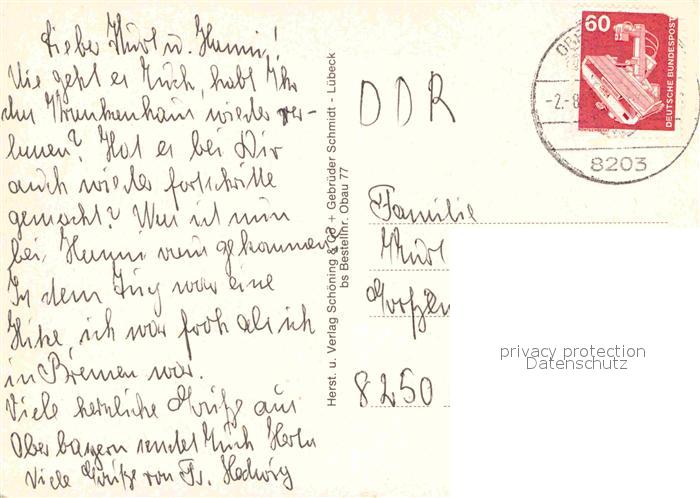 Lieber Kurt u. Hanni!
Wie geht es Euch, habt Ihr
das Krankenhaus wieder ver-
lassen? Hat es bei Dir
auch wieder fortschritte
gemacht? Was ist nun
bei Hanni raus gekommen?
In dem Zug war eine
Hitze, ich war froh als ich
in Bremen war.
Viele herzliche Grüße aus
Oberbayern sendet Euch Herta
Viele Grüße von Fr. Hedwig
Herst. u. Verlag Schöning & Co + Gebrüder Schmidt - Lübeck
bs Bestellnr. Obau 77
DDR
60
DEUTSCHE BUNDESPOST
-2.-8
8203
Familie
Kurt
8250
privacy protection
Datenschutz